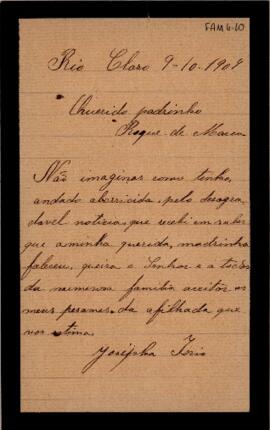 FAM 6-10
Rio Claro 9-10-1909
Querido padrinho
Roque de Marco
Não imaginas como tenho
andado aborricida, pelo desagra
davel noticia que recebi em saber
que a minha querida, madrinha
faleceu, queira o Senhor e a todos
da numerosa familia aceitar os
meus pesames. da afilhada que
vos estima.
Josépha